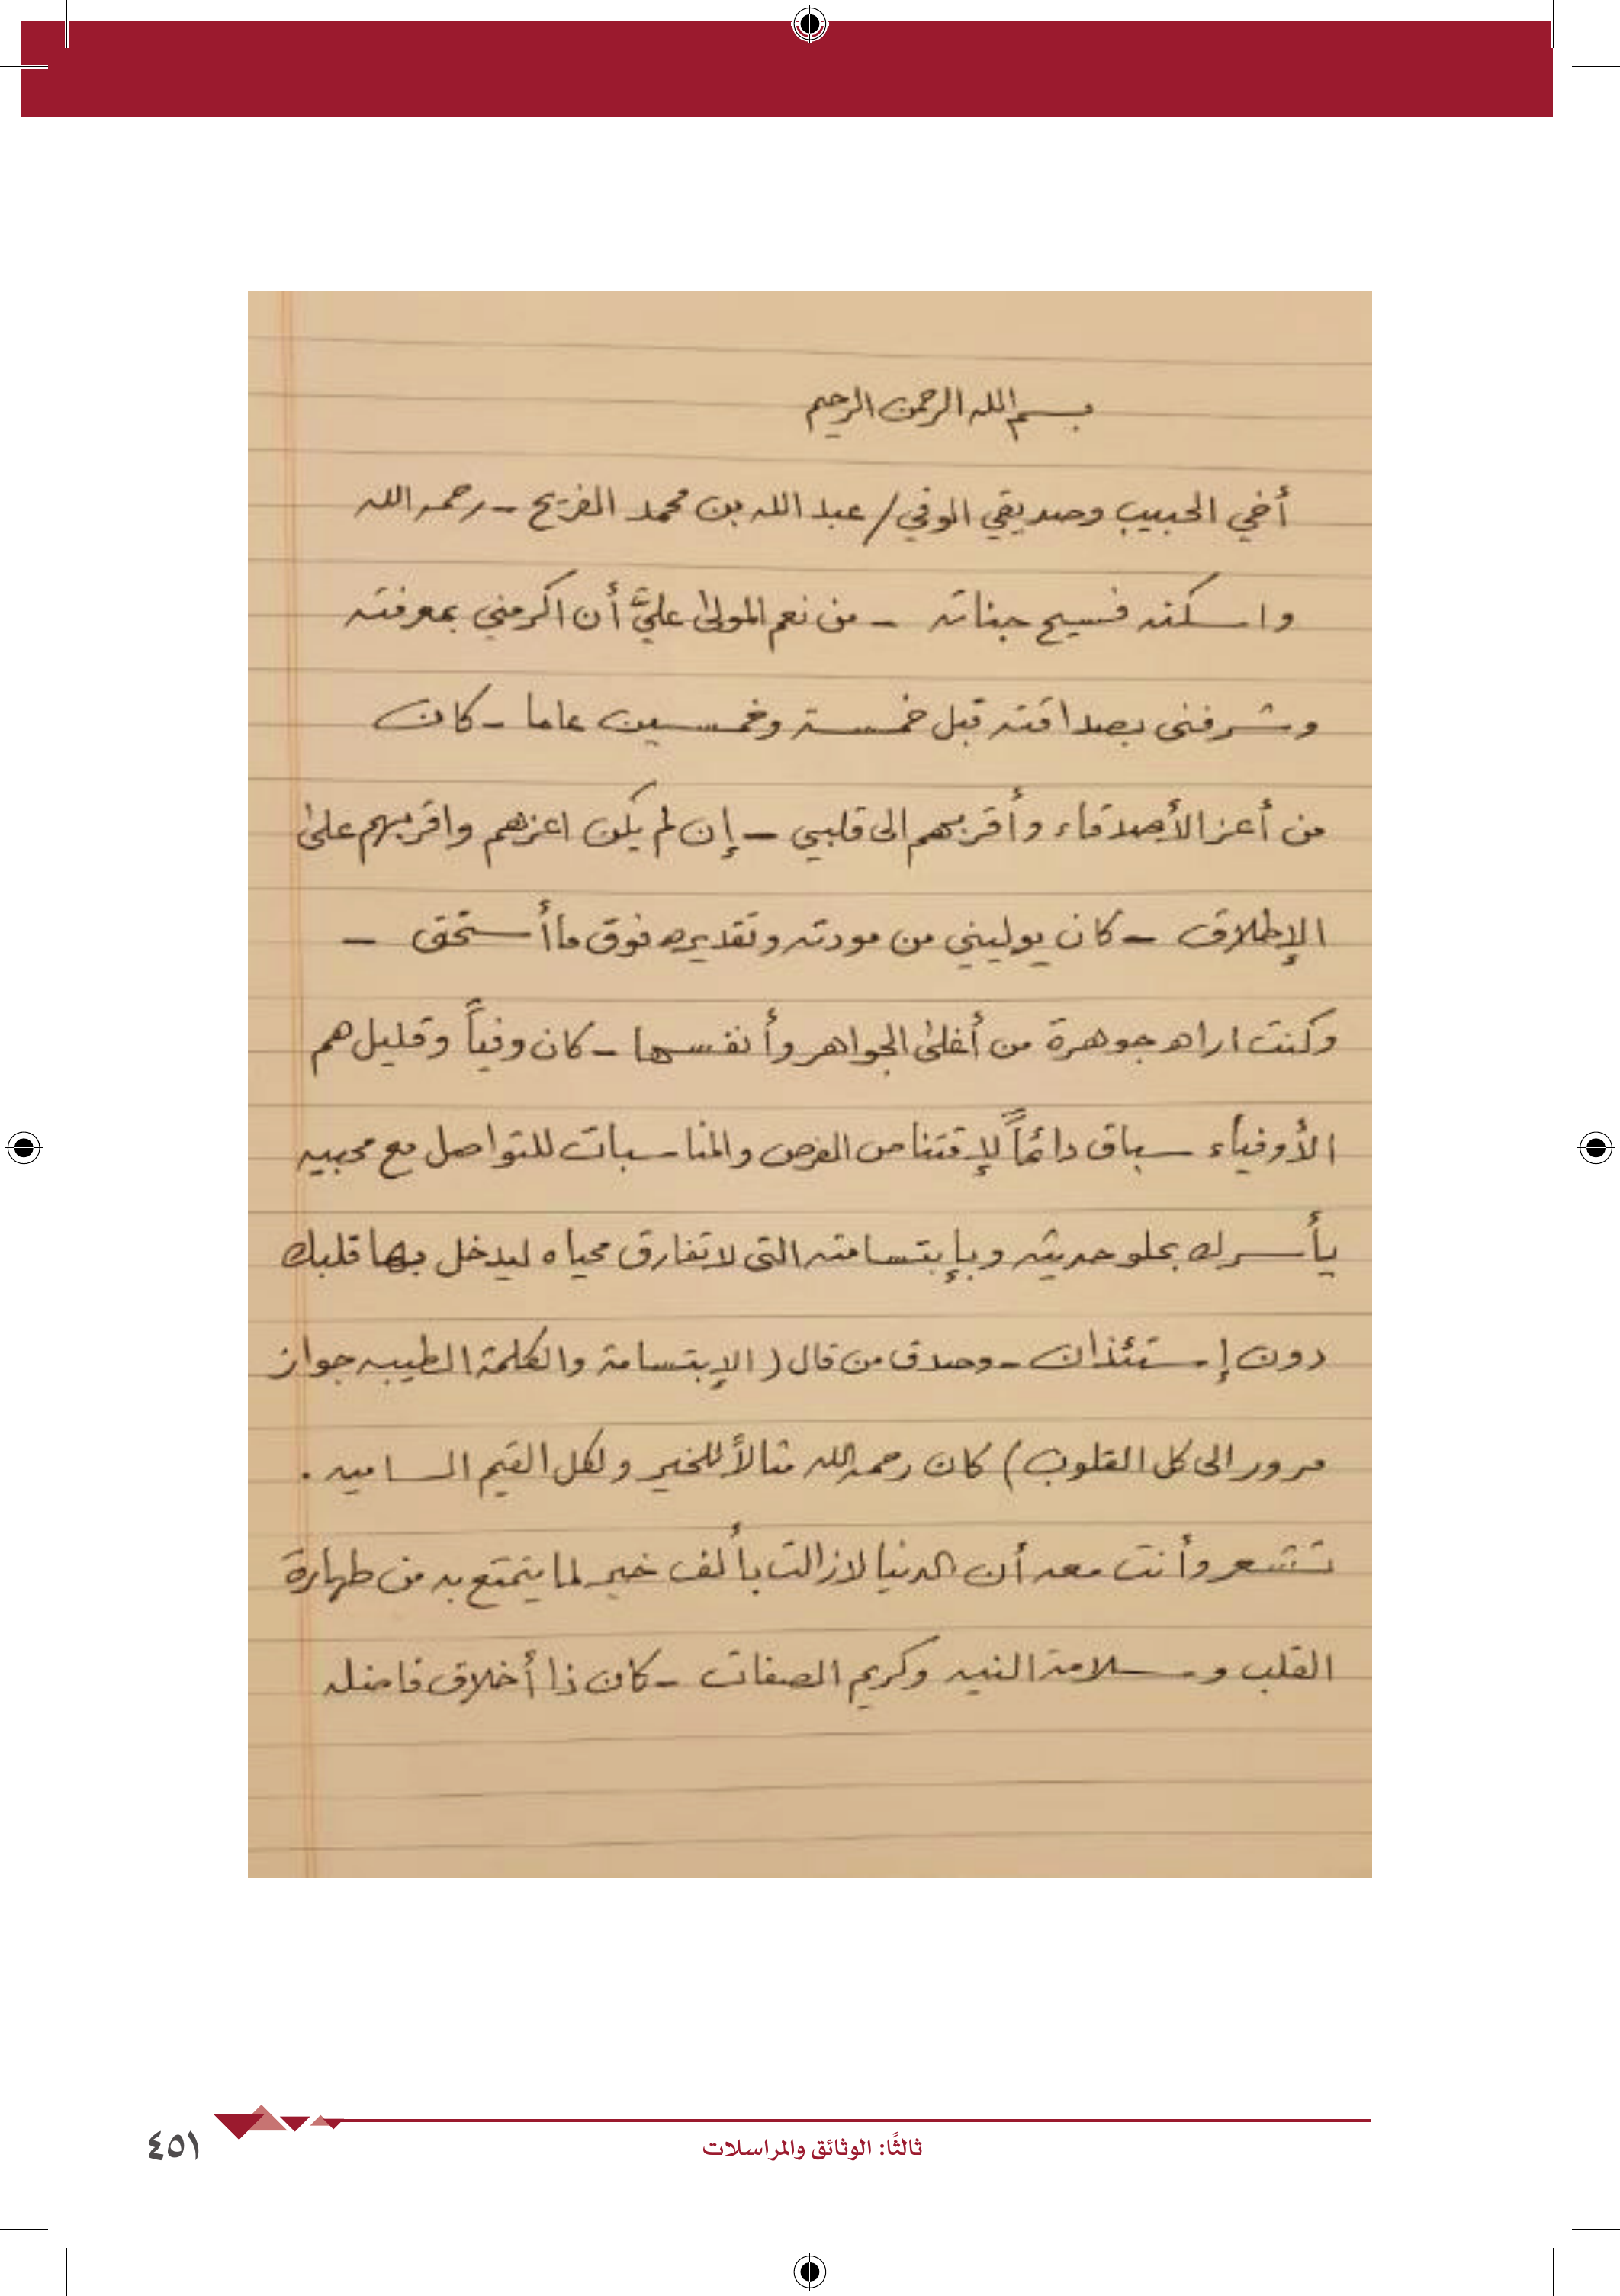 بسم الله الرحمن الرحيم
أخي الحبيب وصديقي الوفي / عبد الله بن محمد الفريح - رحمه الله
واسكنه فسيح جناته - من نعم المولى عليَّ أن اكرمني بمعرفته
وشرفني بصداقته قبل خمسة وخمسين عاما - كان
من أعز الأصدقاء وأقربهم الى قلبي - إن لم يكن اعزهم واقربهم على
الإطلاق - كان يوليني من مودته وتقديره فوق ما أستحق -
وكنت اراه جوهرة من أغلى الجواهر وأنفسها - كان وفياً وقليل هم
الأوفياء سباق دائماً لإقتناص الفرص والمناسبات للتواصل مع محبيه
يأسرك بحلو حديثه وبإبتسامته التي لا تفارق محياه ليدخل بها قلبك
دون إستئذان - وصدق من قال ( الإبتسامة والكلمة الطيبه جواز
مرور الى كل القلوب ) كان رحمه الله مثالاً للخير ولكل القيم الساميه .
تشعر وأنت معه أن الدنيا لازالت بألف خير لما يتمتع به من طهارة
القلب وسلامة النيه وكريم الصفات - كان ذا أخلاق فاضله
ثالثًا: الوثائق والمراسلات
٤٥١